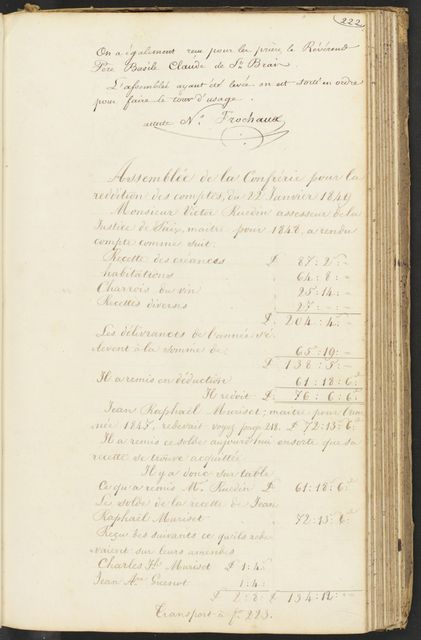 222
On a également reçu pour les prières, le Révérend
Père Basile Claude de St. Brais.
L'assemblée ayant été levée on est sorti en ordre
pour faire le tour d'usage.
atteste Ns. Frochaux
Assemblée de la Confrérie pour la
reddition des comptes, du 22 Janvier 1849
Monsieur Victor Ruedin assesseur de la
Justice de Paix, maitre pour 1848, a rendu
compte comme suit:
Recette des créances £ 87: 2: -
habitations 64: 8: -
Charrois du vin 25: 14: -
Recettes diverses 27: - : -
£ 204: 4: -
Les délivrances de l'année s'é
lèvent à la somme de 65: 19: -
£ 138: 5: -
Il a remis en déduction 61: 18: 6:
Il redoit £ 76: 6: 6:
Jean Raphaël Muriset; maitre pour l'an
née 1847, redevait voyez page 218. £ 72: 15: 6:
Il a remis ce solde aujourd'hui ensorte que sa
recette se trouve acquittée
Il y a donc sur table
Ce qu'a remis Mr. Ruedin £ 61: 18: 6:
Le solde de la recette de Jean
Raphaël Muriset 72: 15: 6:
Reçu des suivants ce qu'ils rede
vaient sur leurs amendes
Charles Muriset £ 1: 4:
Jean Gueniot 1: 4:
£ 2: 8: £ 134: 12: -
Transport à fo. 223.